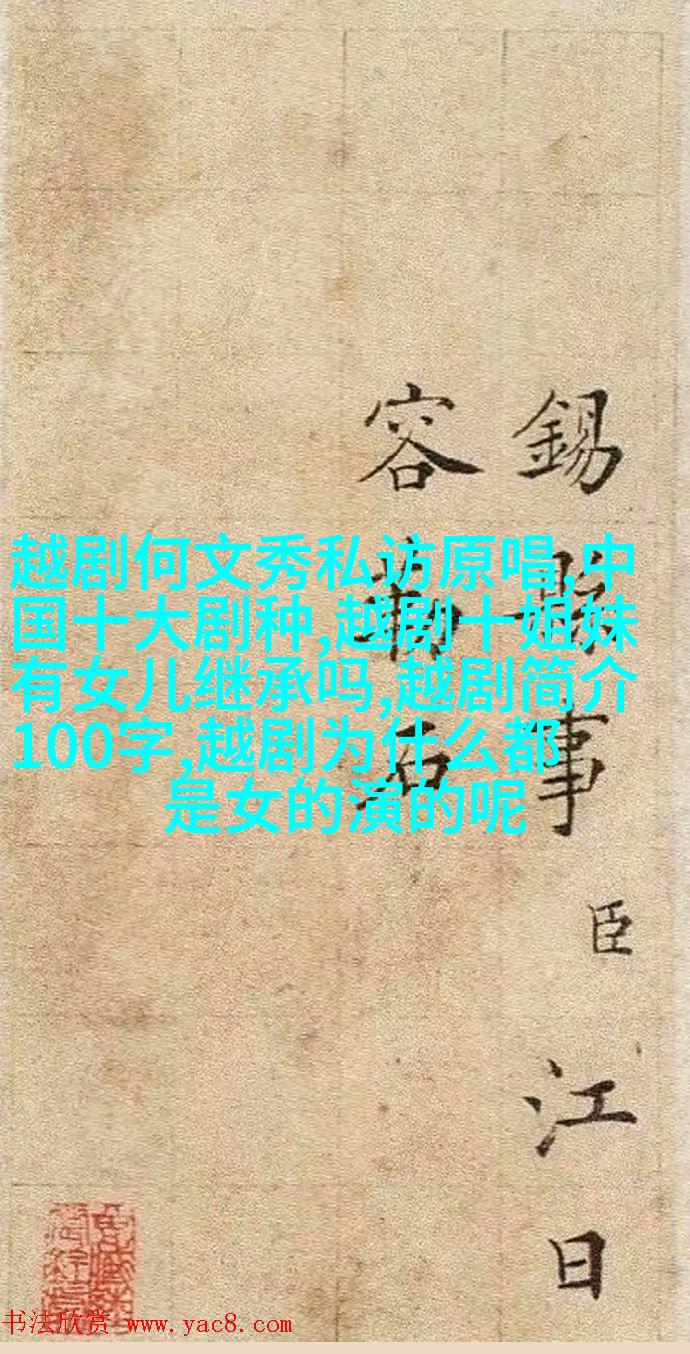 越剧何文秀私访原唱,中
国十大剧种,越剧十姐妹
有女儿继承吗,越剧简介
100字,越剧为什么都
是女的演的呢
錫縣事臣江日
容
书法欣赏 www.yac8.com